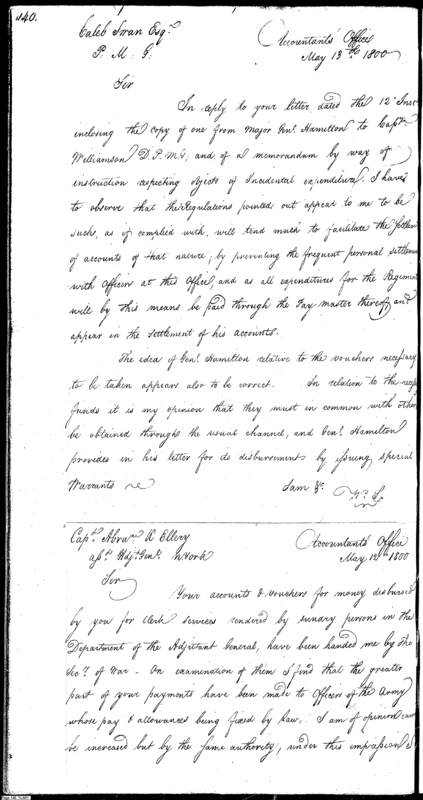 440.
Caleb Swan Esqr.
P. M. G.
Accountants Office
May 13th. 1800
Sir
In reply to your letter dated the 12 Inst
enclosing the copy of one from Major Genl. Hamilton to Captn.
Williamson D. P. Mr., and of a memorandum by way of
instruction respecting objects of Incidental expenditure. I have
to observe that the Regulations pointed out appear to me to be
such, as if complied with, will tend much to facilitate the settlem
of accounts of that nature, by preventing the frequent personal settlem
with Officers at this Office, and as all expenditures for the Regiment
will by this means be paid through the Pay master thereof, and
appear in the settlement of his accounts.
The idea of Genl. Hamilton relative to the vouchers necessary
to be taken appears also to be correct. In relation to the
funds it is my opinion that they must in common with other
be obtained through the usual channel, and Genl. Hamilton
provides in his letter for its disbursements by issuing special
Warrants
I am &c.
W. S.
Capt. Abram R Ellery
asst. Adjt. Genl. NYork
Accountants Office
May 12th 1800
Sir
Your accounts & vouchers for money disbursed
by you for Clerk services rendered by sundry persons in the
Department of the Adjutant General, have been handed me by the
Secy. of War - On examination of them I find that the greater
part of your payments have been made to Officers of the Army
whose pay & allowances being fixed by law, I am of opinion can
be increased but by the same authority, under this impression I